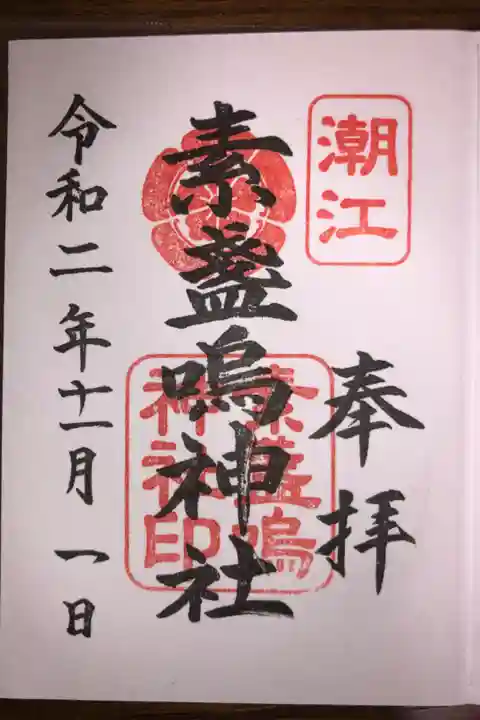 潮江
奉拝
素盞嗚神社
素盞嗚
神社印
令和二年十一月一日